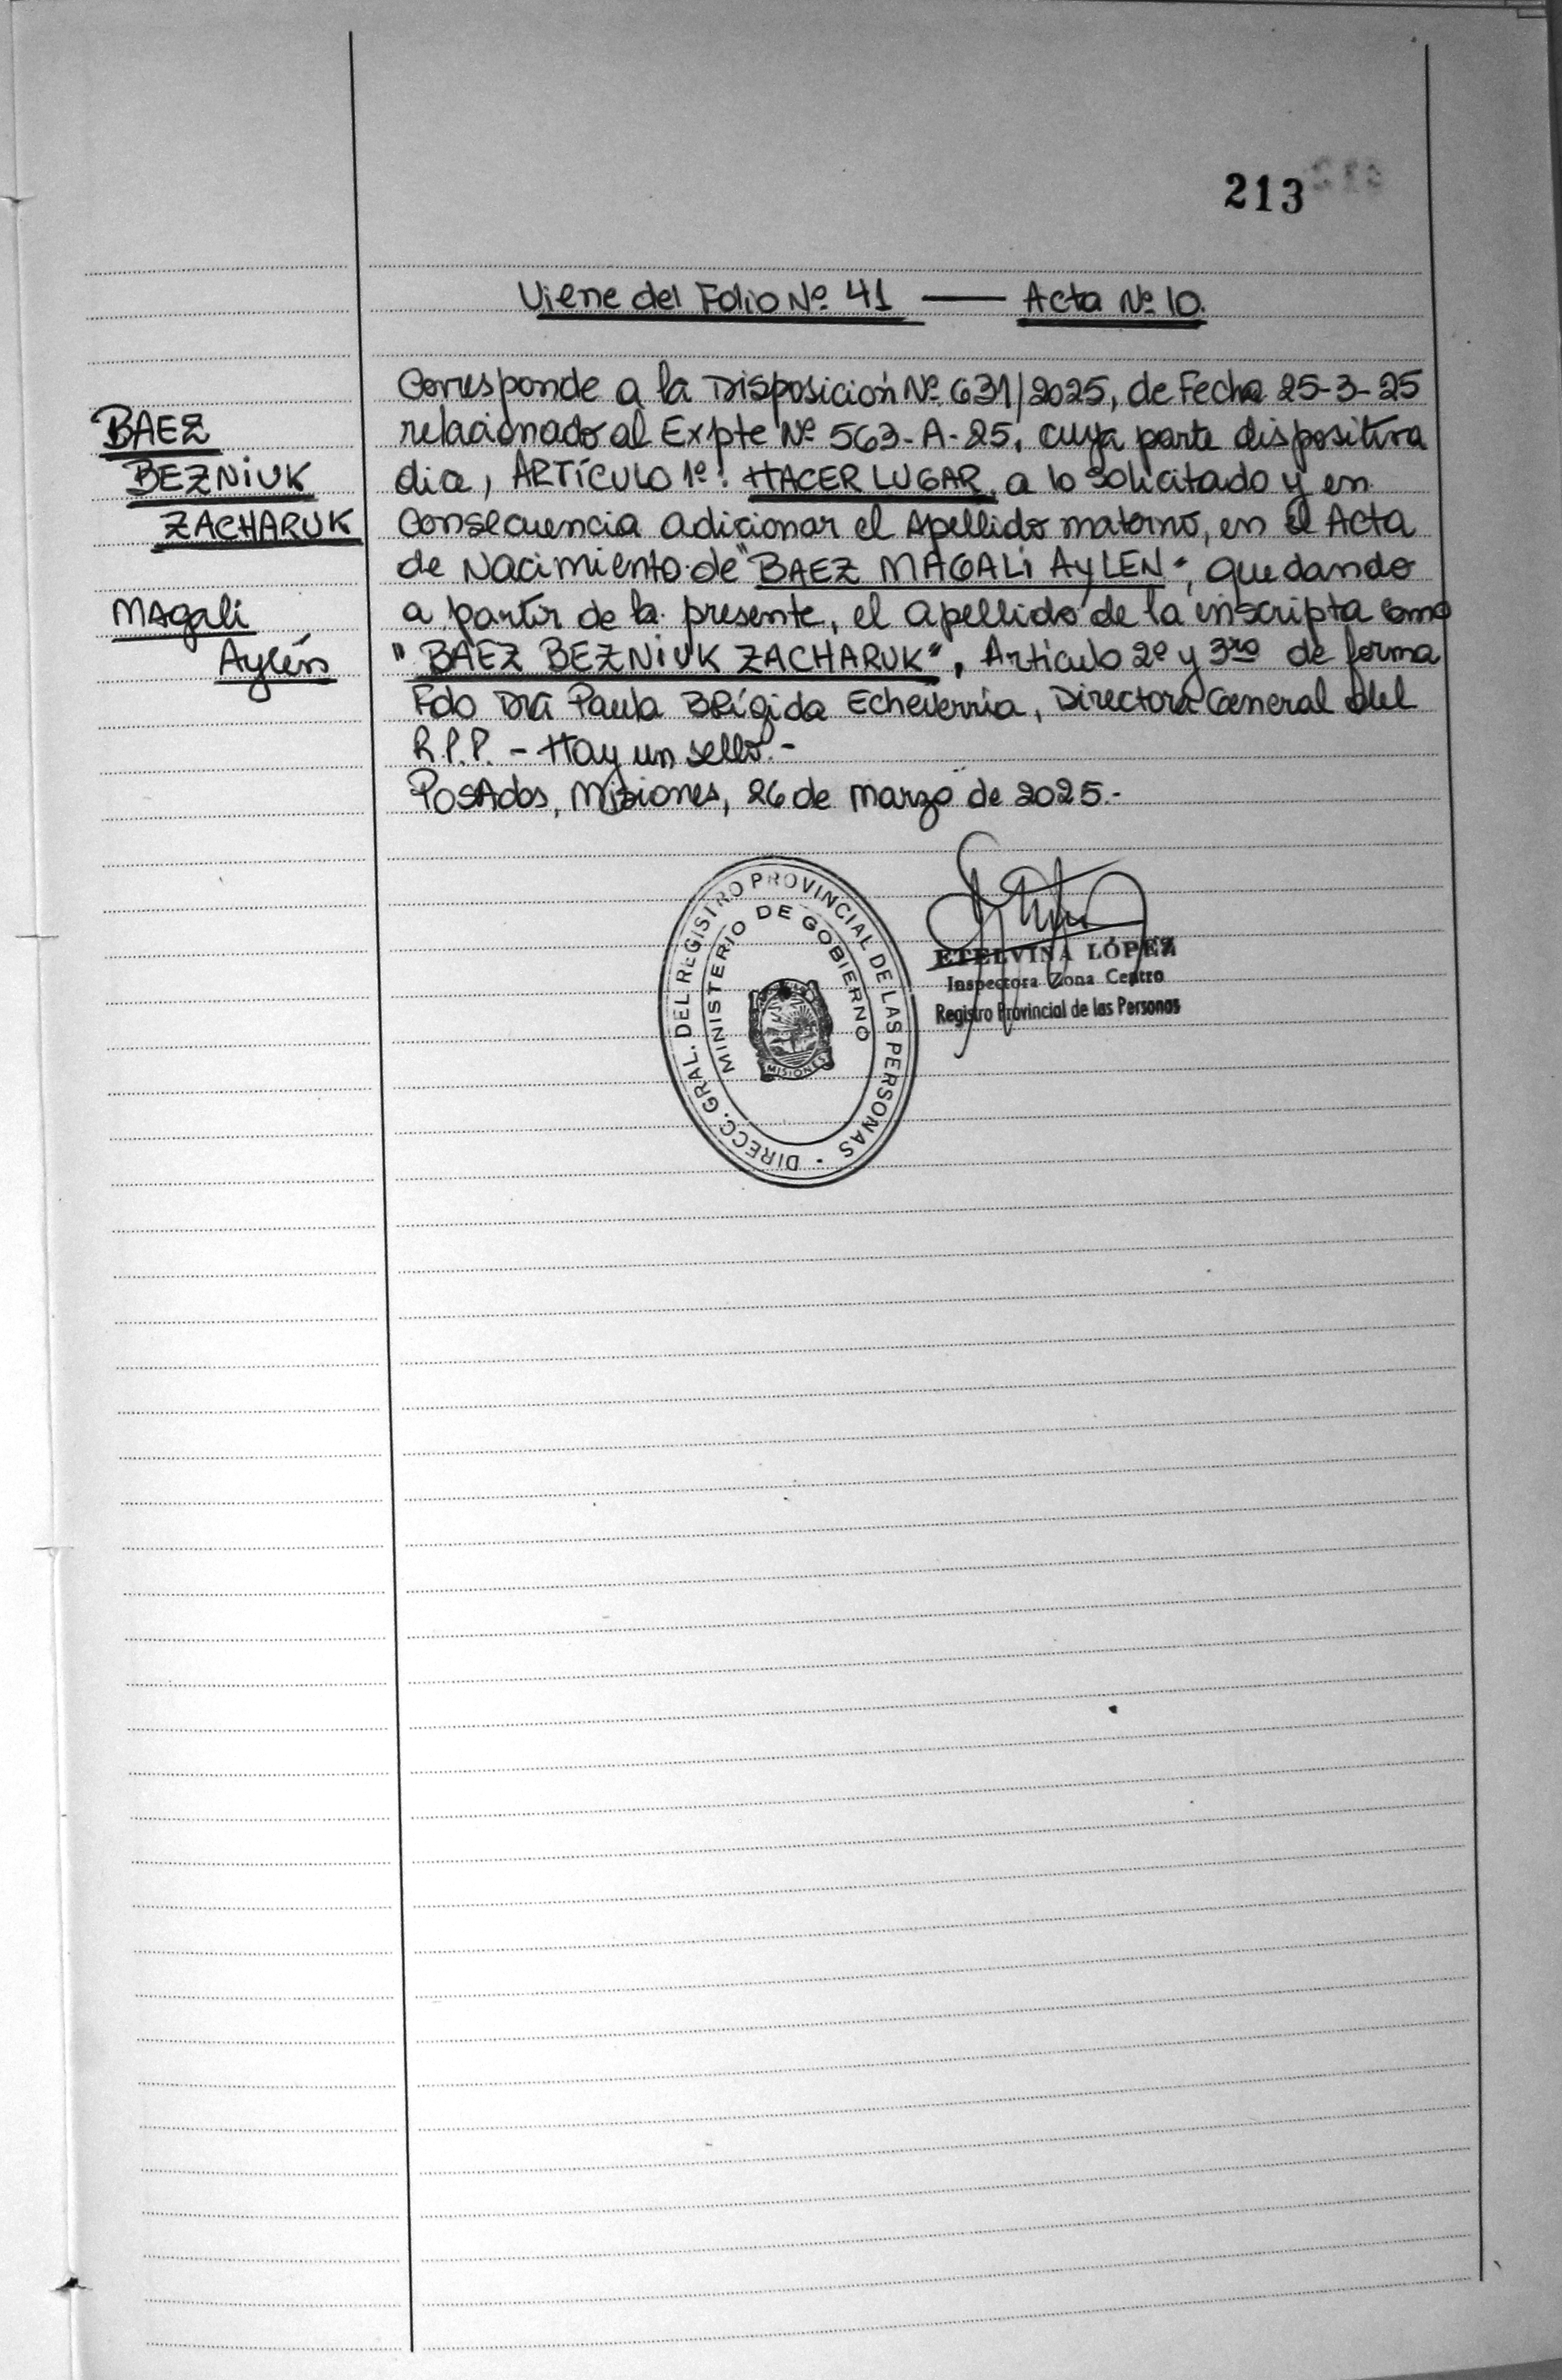 213
Viene del Folio Nº 41 — Acta Nº 10.
Corresponde a la Disposición Nº 631/2025, de Fecha 25-3-25
relacionado al Expte Nº 563-A-25, cuya parte dispositiva
dice, ARTÍCULO 1º: HACER LUGAR, a lo solicitado y en
consecuencia adicionar el Apellido materno, en el Acta
de Nacimiento de "BAEZ MAGALI AYLEN", quedando
a partir de la presente, el apellido de la inscripta como
"BAEZ BEZNIUK ZACHARUK", Artículo 2º y 3ro de forma
Fdo Dra Paula Brígida Echeverria, Directora General del
R.P.P. - Hay un sello.-
Posadas, Misiones, 26 de marzo de 2025.-
BAEZ
BEZNIUK
ZACHARUK
Magali
Aylén
DIRECC. GRAL. DEL REGISTRO PROVINCIAL DE LAS PERSONAS
MINISTERIO DE GOBIERNO
MISIONES
ETELVINA LÓPEZ
Inspectora Zona Centro
Registro Provincial de las Personas